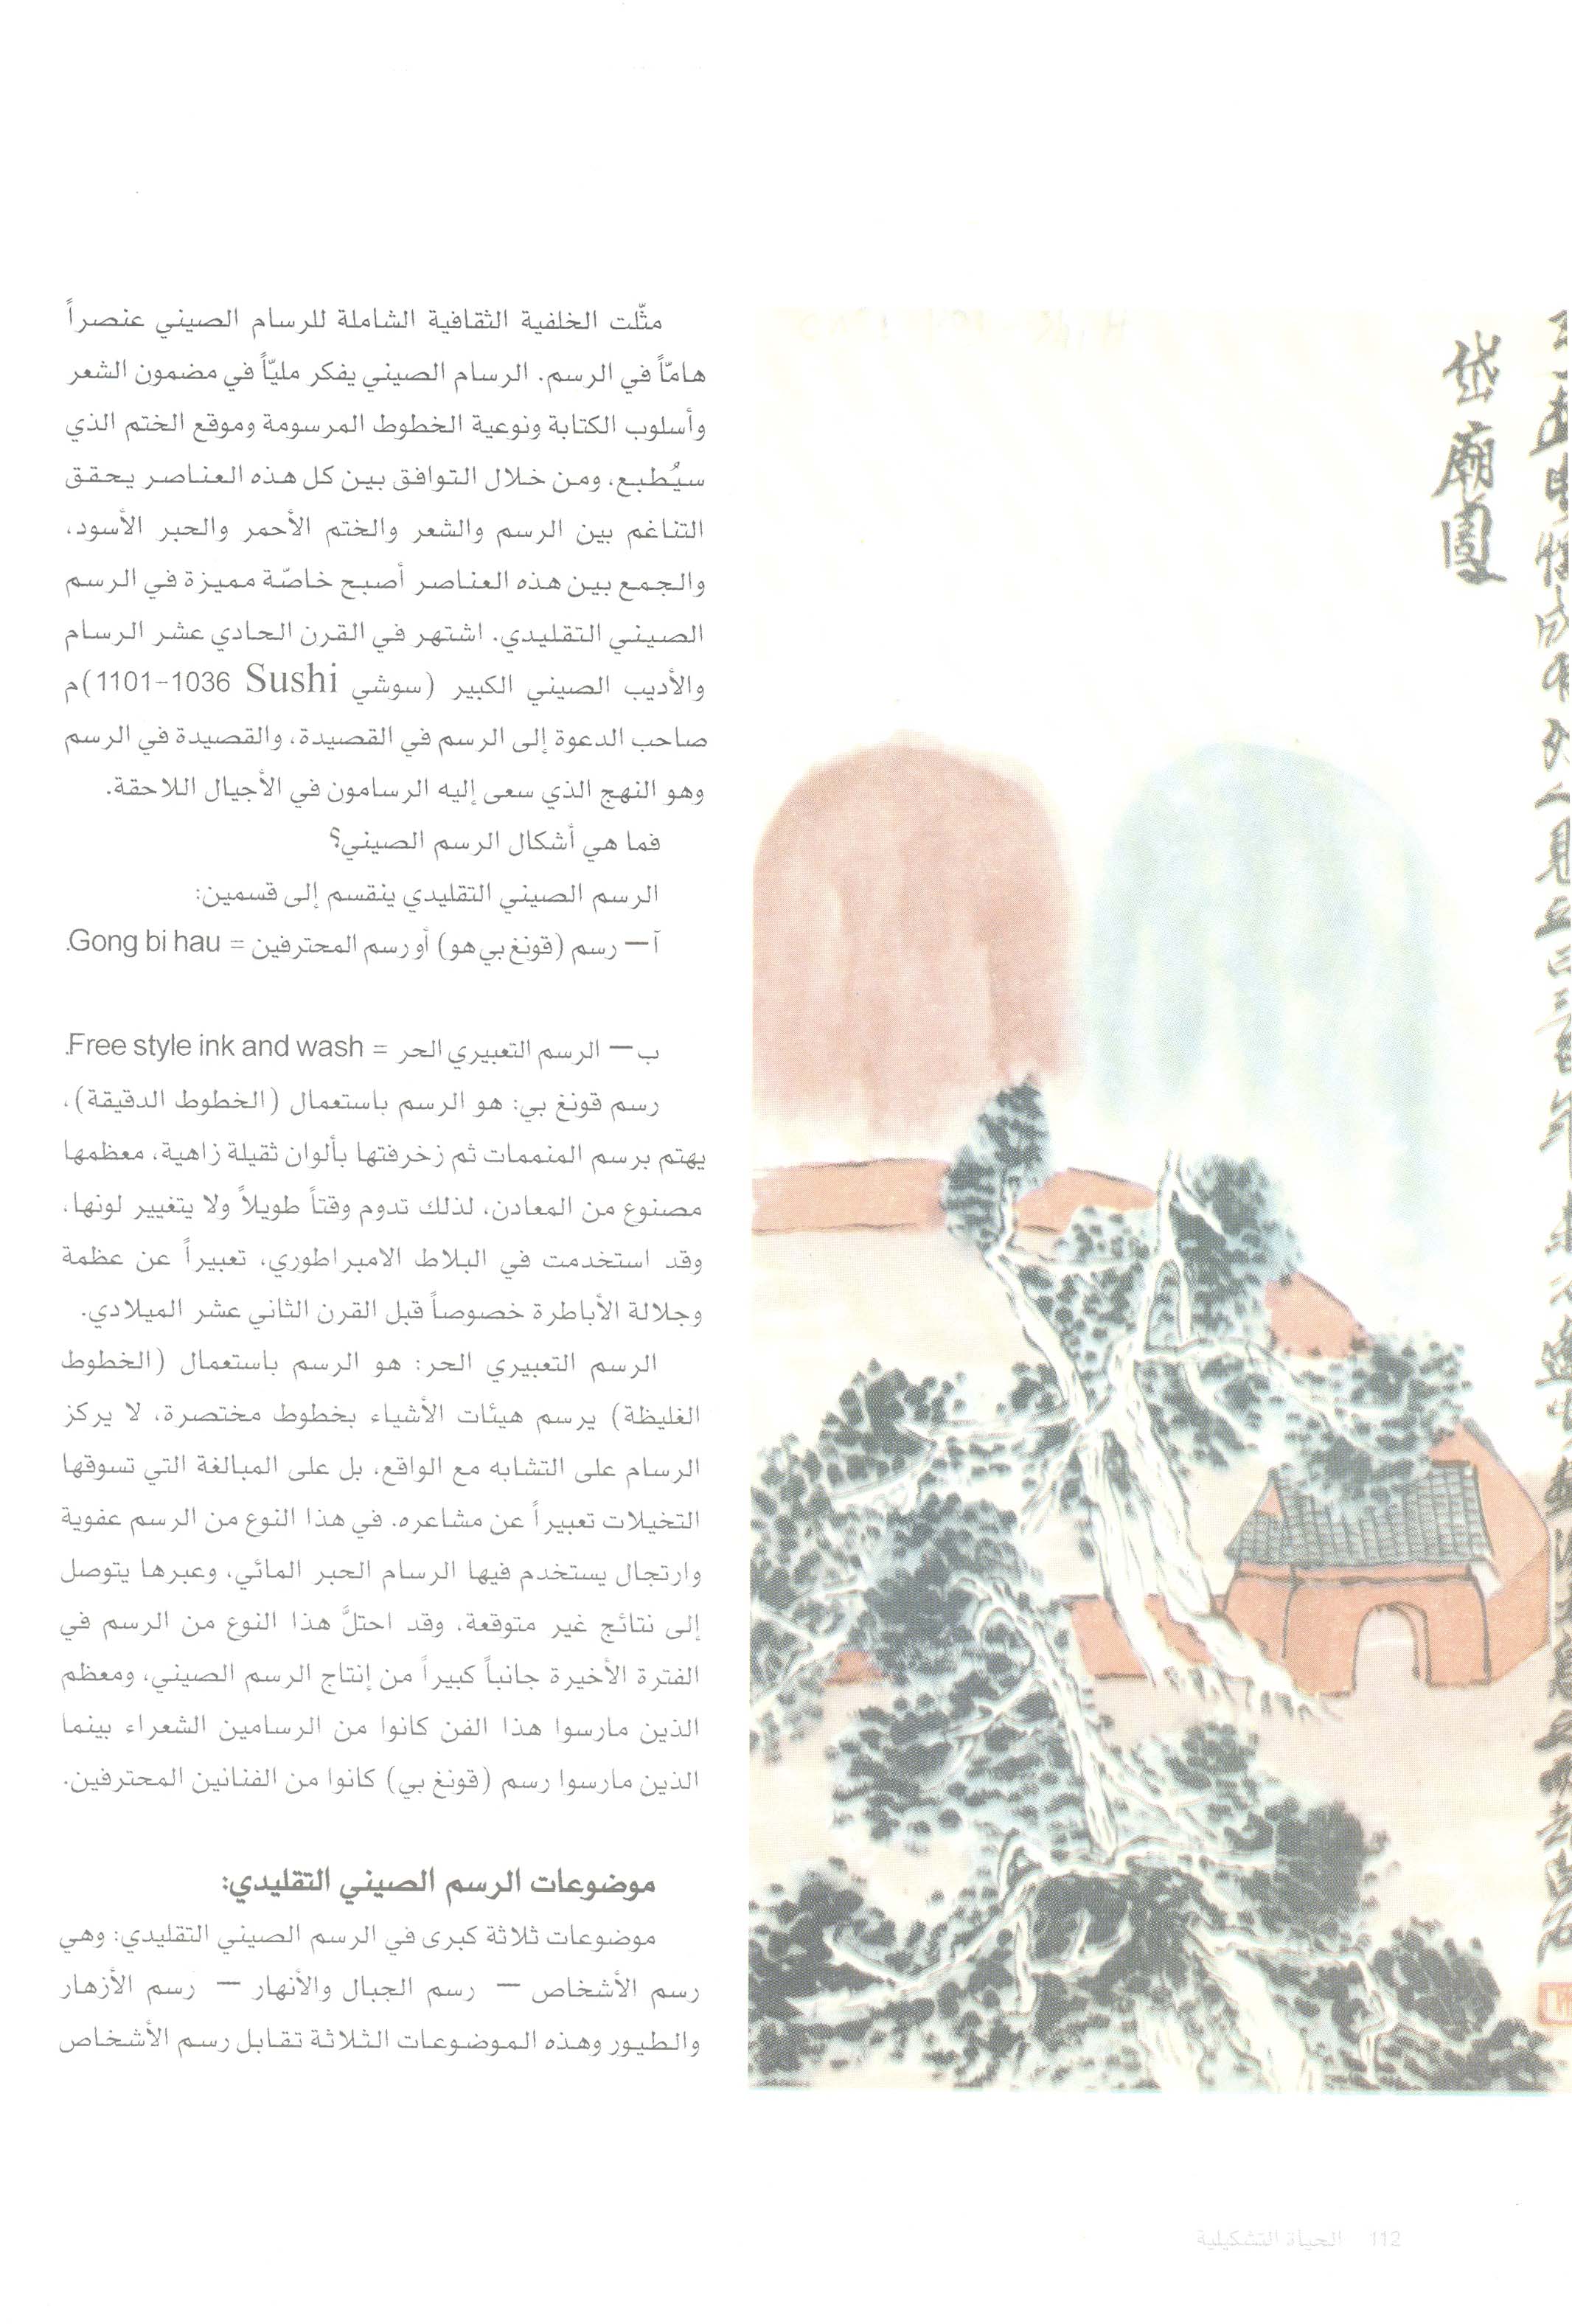 مثّلت الخلفية الثقافية الشاملة للرسام الصيني عنصراً
هامّاً في الرسم. الرسام الصيني يفكر مليّاً في مضمون الشعر
وأسلوب الكتابة ونوعية الخطوط المرسومة وموقع الختم الذي
سيُطبع، ومن خلال التوافق بين كل هذه العناصر يحقق
التناغم بين الرسم والشعر والختم الأحمر والحبر الأسود،
والجمع بين هذه العناصر أصبح خاصّة مميزة في الرسم
الصيني التقليدي. اشتهر في القرن الحادي عشر الرسام
والأديب الصيني الكبير (سوشي Sushi 1036-1101)م
صاحب الدعوة إلى الرسم في القصيدة، والقصيدة في الرسم
وهو النهج الذي سعى إليه الرسامون في الأجيال اللاحقة.
فما هي أشكال الرسم الصيني؟
الرسم الصيني التقليدي ينقسم إلى قسمين:
آ— رسم (قونغ بي هو) أو رسم المحترفين = Gong bi hau.
ب— الرسم التعبيري الحر = Free style ink and wash.
رسم قونغ بي: هو الرسم باستعمال (الخطوط الدقيقة)،
يهتم برسم المنممات ثم زخرفتها بألوان ثقيلة زاهية، معظمها
مصنوع من المعادن، لذلك تدوم وقتاً طويلاً ولا يتغيير لونها،
وقد استخدمت في البلاط الامبراطوري، تعبيراً عن عظمة
وجلالة الأباطرة خصوصاً قبل القرن الثاني عشر الميلادي.
الرسم التعبيري الحر: هو الرسم باستعمال (الخطوط
الغليظة) يرسم هيئات الأشياء بخطوط مختصرة، لا يركز
الرسام على التشابه مع الواقع، بل على المبالغة التي تسوقها
التخيلات تعبيراً عن مشاعره. في هذا النوع من الرسم عفوية
وارتجال يستخدم فيها الرسام الحبر المائي، وعبرها يتوصل
إلى نتائج غير متوقعة، وقد احتلَّ هذا النوع من الرسم في
الفترة الأخيرة جانباً كبيراً من إنتاج الرسم الصيني، ومعظم
الذين مارسوا هذا الفن كانوا من الرسامين الشعراء بينما
الذين مارسوا رسم (قونغ بي) كانوا من الفنانين المحترفين.
موضوعات الرسم الصيني التقليدي:
موضوعات ثلاثة كبرى في الرسم الصيني التقليدي: وهي
رسم الأشخاص — رسم الجبال والأنهار — رسم الأزهار
والطيور وهذه الموضوعات الثلاثة تقابل رسم الأشخاص
岱廟圖
112 الحياة التشكيلية